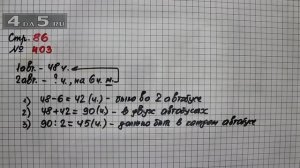 4DA5.RU
Стр. 86
№ 403
1авт. - 48 ч.
2авт. - ? ч., на 6 ч. м.
1) 48-6=42 (ч.) - было во 2 автобусе
2) 48+42=90 (ч) - в двух автобусах
3) 90:2=45 (ч.) - должно быть в каждом автобусе